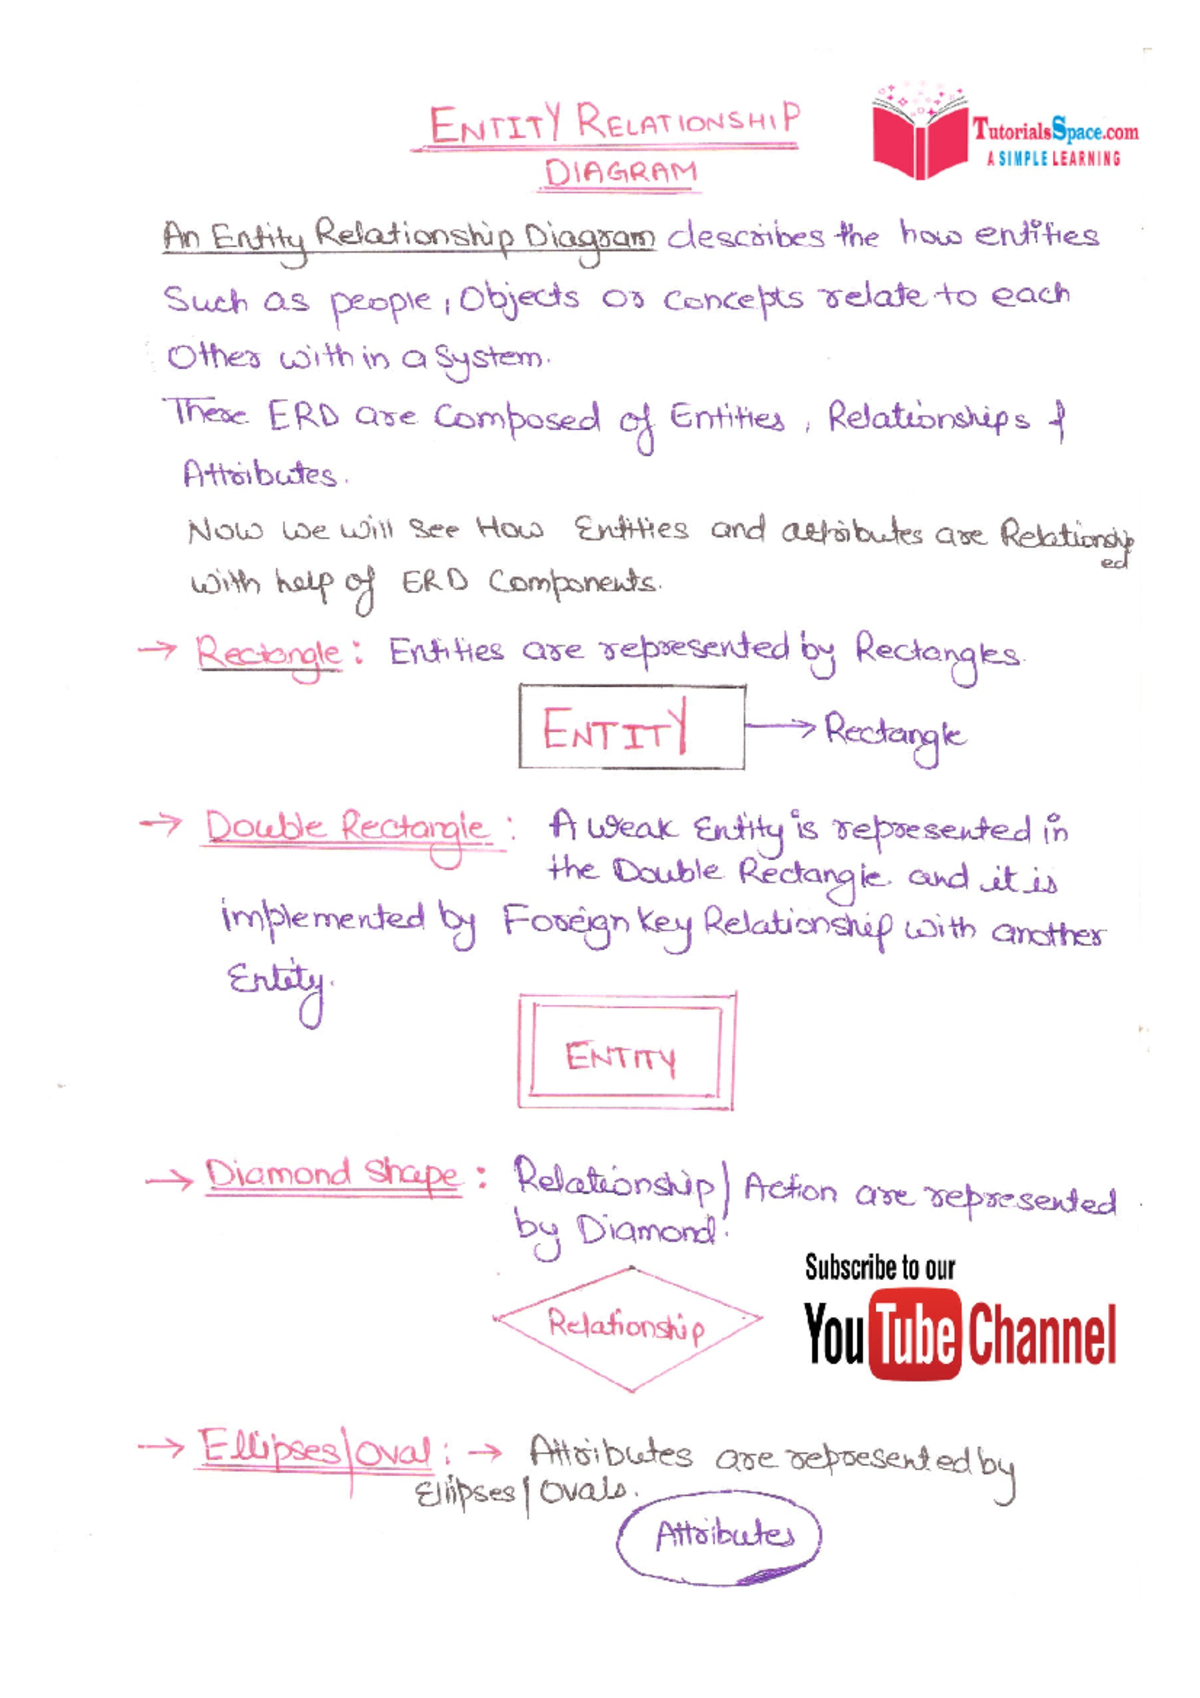 ENTITY RELATIONSHIP
DIAGRAM
TutorialsSpace.com
A SIMPLE LEARNING
An Entity Relationship Diagram describes the how entities
Such as people, Objects or concepts relate to each
Other with in a System.
These ERD are Composed of Entities, Relationships &
Attributes.
Now we will see How Entities and attributes are Relationship
ed
with help of ERD Components.
→ Rectangle: Entities are represented by Rectangles.
ENTITY → Rectangle
→ Double Rectangle: A weak Entity is represented in
the Double Rectangle and it is
implemented by Foreign key Relationship with another
Entity.
ENTITY
→ Diamond Shape: Relationship/Action are represented
by Diamond.
Subscribe to our
YouTube Channel
Relationship
→ Ellipses/Oval: → Attributes are represented by
Ellipses/Ovals.
Attributes